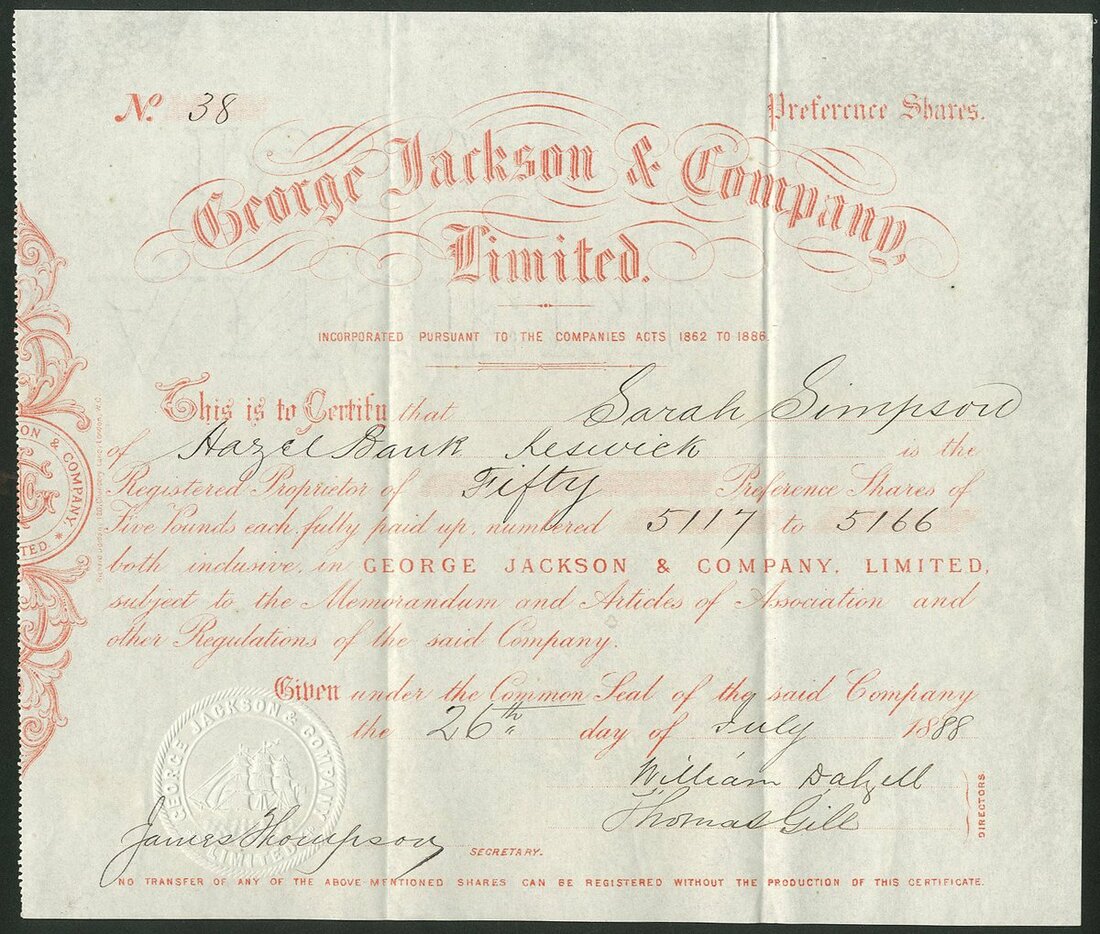 No. 38
Preference Shares.
George Jackson & Company
Limited.
INCORPORATED PURSUANT TO THE COMPANIES ACTS 1862 TO 1886.
This is to Certify that Sarah Simpson
of Hazel Bank Keswick is the
Registered Proprietor of Fifty Preference Shares of
Five Pounds each, fully paid up, numbered 5117 to 5166
both inclusive, in GEORGE JACKSON & COMPANY, LIMITED,
subject to the Memorandum and Articles of Association and
other Regulations of the said Company.
Given under the Common Seal of the said Company
the 26th day of July 1888
William Dalzell
Thomas Gill
DIRECTORS
James Thompson SECRETARY.
GEORGE JACKSON & COMPANY
LIMITED
NO TRANSFER OF ANY OF THE ABOVE-MENTIONED SHARES CAN BE REGISTERED WITHOUT THE PRODUCTION OF THIS CERTIFICATE.
ON & COMPANY